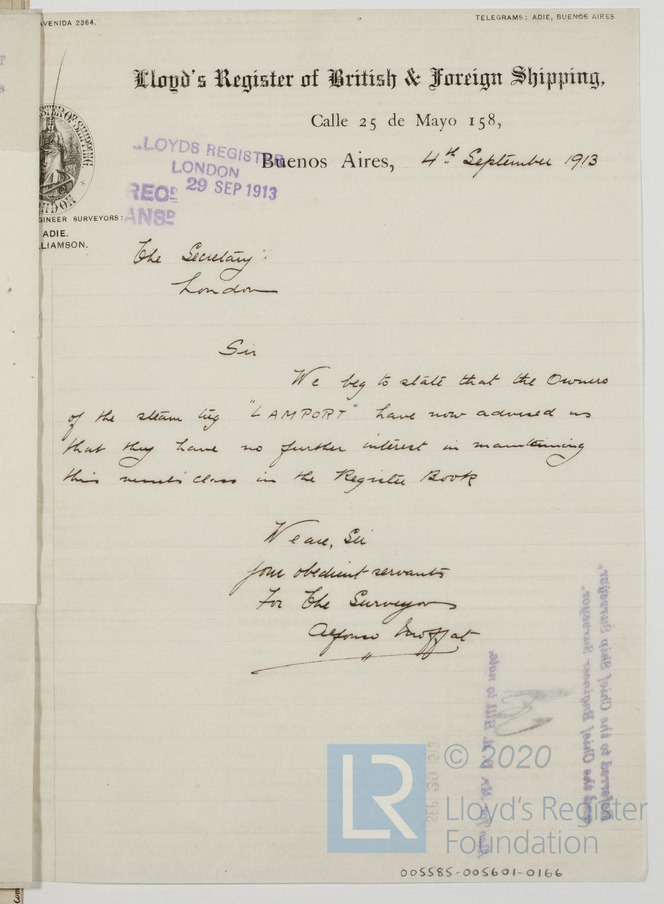 AVENIDA 2364.
TELEGRAMS: ADIE, BUENOS AIRES.
Lloyd's Register of British & Foreign Shipping,
Calle 25 de Mayo 158,
Buenos Aires, 4th September 1913
LLOYDS REGISTER
LONDON
RECD 29 SEP 1913
ANSD
STER OF SHIPPING
LONDON
GINEER SURVEYORS:
ADIE.
LIAMSON.
The Secretary
London
Sir
We beg to state that the Owners
of the steam tug "LAMPORT" have now advised us
that they have no further interest in maintaining
this vessel's class in the Register Book
We are, Sir
Your obedient servants
For The Surveyors
Alfonso Moffat
Referred to the Chief Ship Surveyor.
and the Chief Engineer Surveyor.
Mr. Hill to note.
LR
© 2020
Lloyd's Register
Foundation
005585-005601-0166